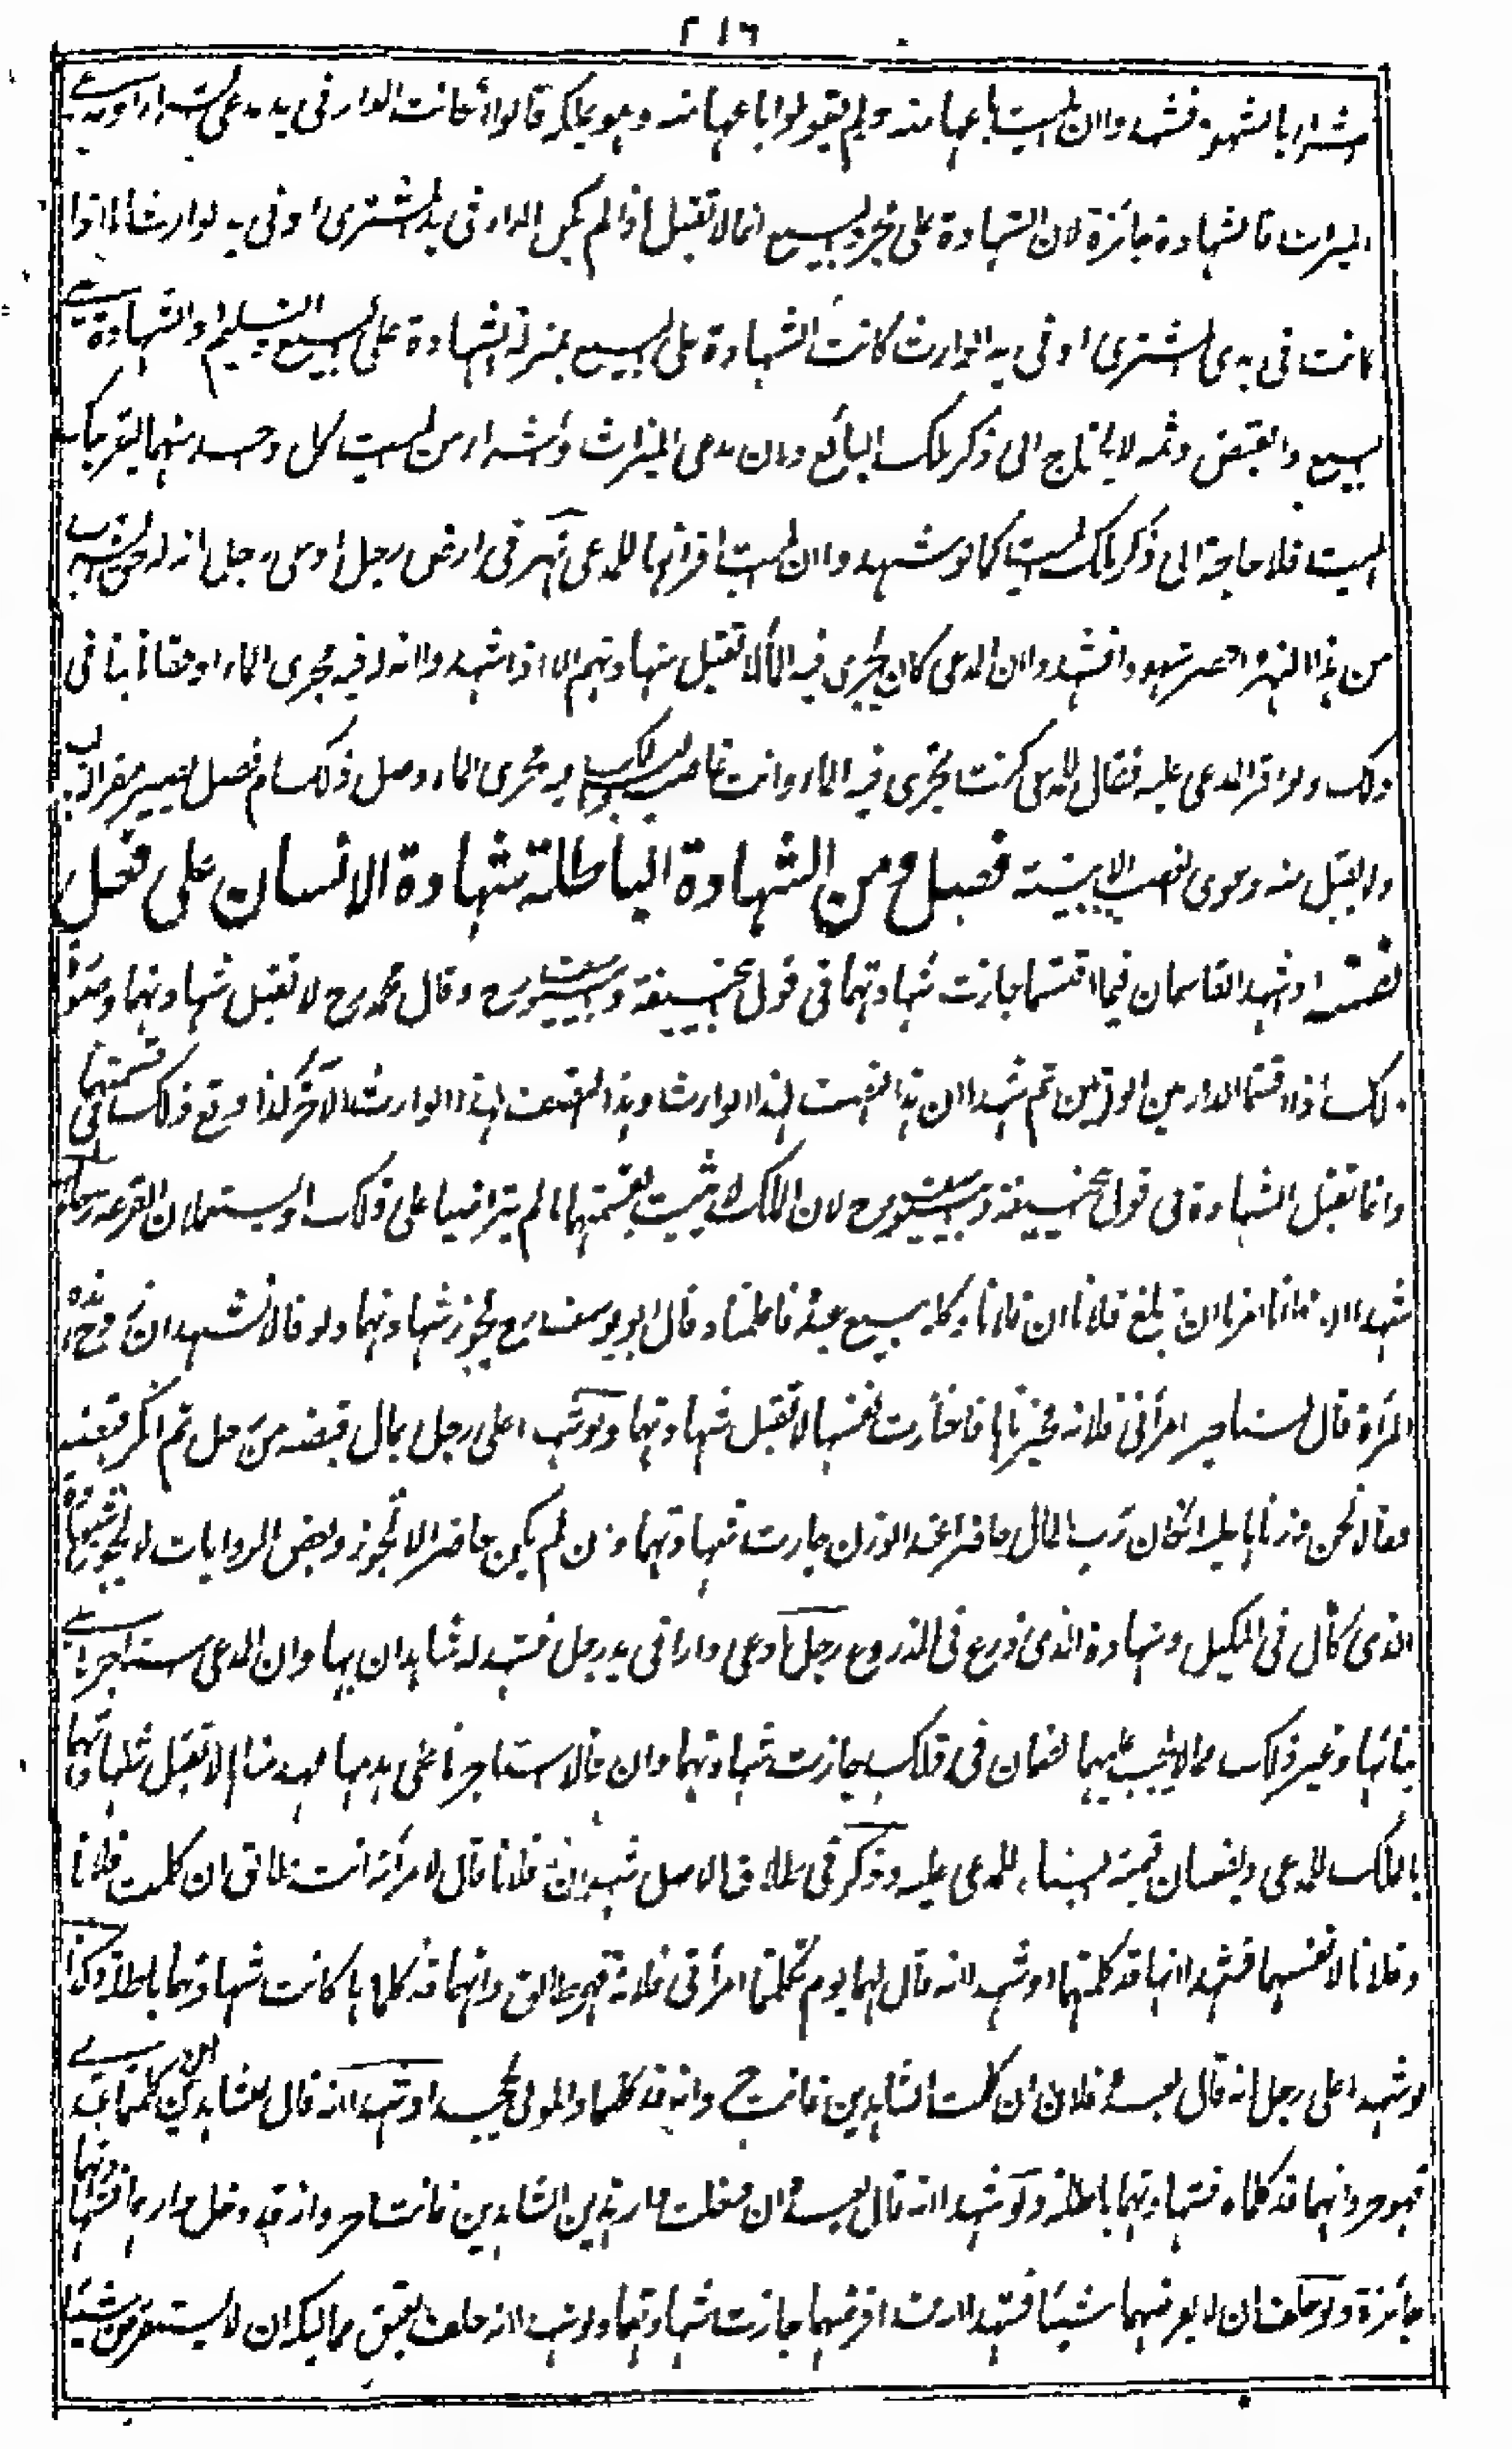 ٢١٦
شراء بالشهود فشهدوا ان الميت باعها منه ولم يقولوا باعها منه وهو يملكه قالوا ان كانت الدار فى يد مدعى الشراء او مدعى
الميراث فالشهادة جائزة لان الشهادة على مجرد البيع انما لا تقبل اذا لم يكن الدار فى يد المشترى او فى يد الوارث اما اذا
كانت فى يدى المشترى او فى يد الوارث كانت الشهادة على البيع بمنزلة الشهادة على البيع والتسليم او الشهادة على
البيع والقبض وثمه لا يحتاج الى ذكر ملك البائع ولان مدعى الميراث والشراء من الميت كل واحد منهما يقر بملك
الميت فلا حاجة الى ذكر ملك الميت كما لو شهدوا ان الميت اقر انها للمدعى نهر فى ارض رجل ادعى رجل انه له بحق الشرب
من هذا النهر واحضر شهودا فشهدوا ان المدعى كان يجرى فيه الماء لا تقبل شهادتهم الا اذا شهدوا انه له فيه مجرى الماء او حقا ثابتا فى
ذلك ولو اقر المدعى عليه فقال للمدعى كنت تجرى فيه الماء وانت غاصب فيه مجرى الماء وصل ذلك ام فصل يصير مقرا
ولا يقبل منه دعوى الغصب الا ببينة فصل ومن الشهادة الباطلة شهادة الانسان على فعل
نفسه اذا شهد القاسمان فيما اقتسما جازت شهادتهما فى قول ابى حنيفة وابى يوسف رح وقال محمد رح لا تقبل شهادتهما وصورة
ذلك اذا اقتسما الدار بين الورثة ثم شهدا ان هذا القسمت لهذا الوارث وهذا القسمت لهذا الوارث الآخر كذا وقع ذلك فى قسمتهما
وانما تقبل الشهادة فى قول ابى حنيفة وابى يوسف رح لان الملك لا يثبت بقسمتهما ما لم يتراضيا على ذلك او يستعملان القرعة رجلان
شهدا ان فلانا امرنا ان نبلغ فلانا ان فلانا وكله ببيع عبده فاعلمناه قال ابو يوسف رح يجوز شهادتهما ولو قالا نشهد ان زوج هذه
المرأة قال لنا خير امرأتى فلانة فخيرناها فاختارت نفسها لا تقبل شهادتهما ولو شهدا على رجل بمال قبضه من رجل ثم انكر قبضه
فقالا نحن وزناها عليه ان كان رب المال حاضرا عند الوزن جازت شهادتهما وان لم يكن حاضرا لا تجوز وبعض الروايات لا يجوز شهادة
الذى كال فى المكيل وشهادة الذى ذرع فى المذروع رجل ادعى دارا فى يد رجل فشهد له شاهدان بها وان المدعى استاجرنا على
بنائها وغير ذلك مما لا يجب عليهما الضمان فى ذلك جازت شهادتهما وان قالا استاجرنا على هدمها فهدمناها لا تقبل شهادتهما
بالملك للمدعى ويضمنان قيمة البناء للمدعى عليه وذكر فى طلاق الاصل شهد ان فلانا قال لامرأته انت طالق ان كلمت فلانا
وفلانا لانفسهما فشهدا انها قد كلمتهما او شهدا انه قال لهما يوم تكلمتا امرأتى فلانة فهى طالق وانهما قد كلماها كانت شهادتهما باطلة وكذا
لو شهدا على رجل انه قال لعبده فلان ان كلمت الشاهدين فانت حر وانه قد كلمهما والمولى يجحد او شهدا انه قال للشاهدين ان كلمتما عبدى
فهو حر وانهما قد كلماه فشهادتهما باطلة ولو شهدا انه قال لعبده ان دخلت دار هذين الشاهدين فانت حر وانه قد دخل دارهما فشهادتهما
جائزة ولو حلف ان لا يقرضهما شيئا فشهدا انه اقرضهما جازت شهادتهما ولو شهدا انه حلف بعتق مماليكه ان لا يستقرض شيئا